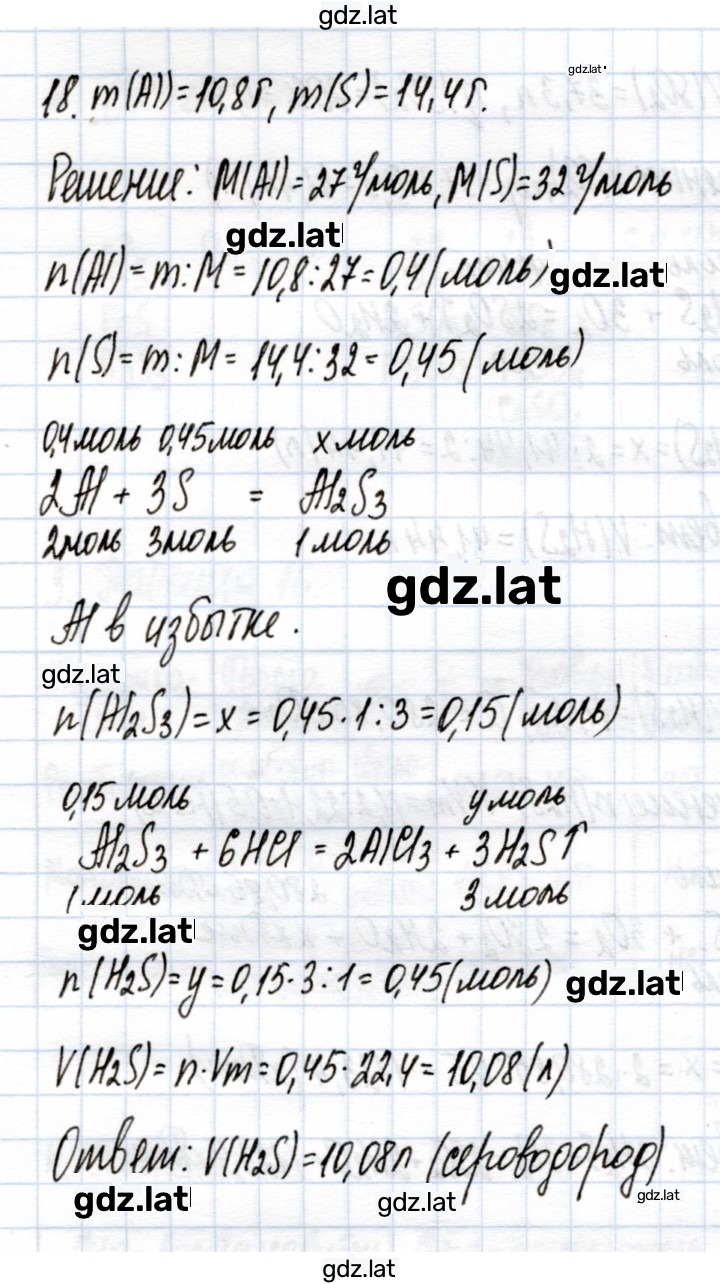 gdz.lat
gdz.lat
18. m(Al)=10,8г, m(S)=14,4г.
Решение: M(Al)=27г/моль, M(S)=32г/моль
gdz.lat
n(Al)=m:M=10,8:27=0,4(моль)
gdz.lat
n(S)=m:M=14,4:32=0,45(моль)
0,4моль 0,45моль x моль
2Al + 3S = Al₂S₃
2моль 3моль 1моль
gdz.lat
Al в избытке.
gdz.lat
n(Al₂S₃)=x=0,45·1:3=0,15(моль)
0,15моль yмоль
Al₂S₃ + 6HCl = 2AlCl₃ + 3H₂S↑
1моль 3моль
gdz.lat
n(H₂S)=y=0,15·3:1=0,45(моль)
gdz.lat
V(H₂S)=n·Vm=0,45·22,4=10,08(л)
Ответ: V(H₂S)=10,08л (сероводород)
gdz.lat
gdz.lat
gdz.lat
gdz.lat